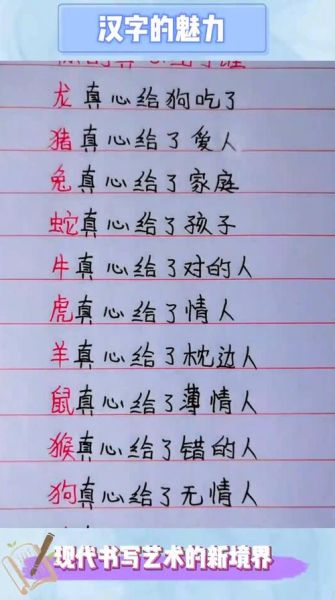 汉字的魅力
龙真心给狗吃了
猪真心给了爱人
兔真心给了家庭
蛇真心给了孩子
牛真心给了对的人
虎真心给了情人
羊真心给了枕边人
鼠真心给了薄情人
猴真心给了错的人
狗真心给了无情人
现代书写艺术的新境界